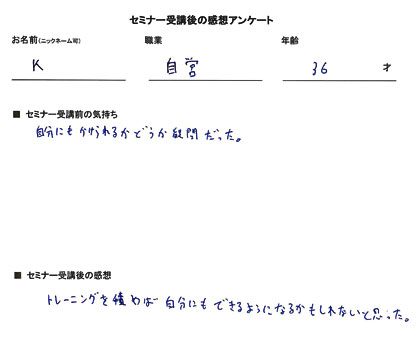 セミナー受講後の感想アンケート
お名前(ニックネーム可) 職業 年齢
K 自営 36 才
■ セミナー受講前の気持ち
自分にもかけられるかどうか疑問だった。
■ セミナー受講後の感想
トレーニングを積めば自分にもできるようになるかもしれないと思った。